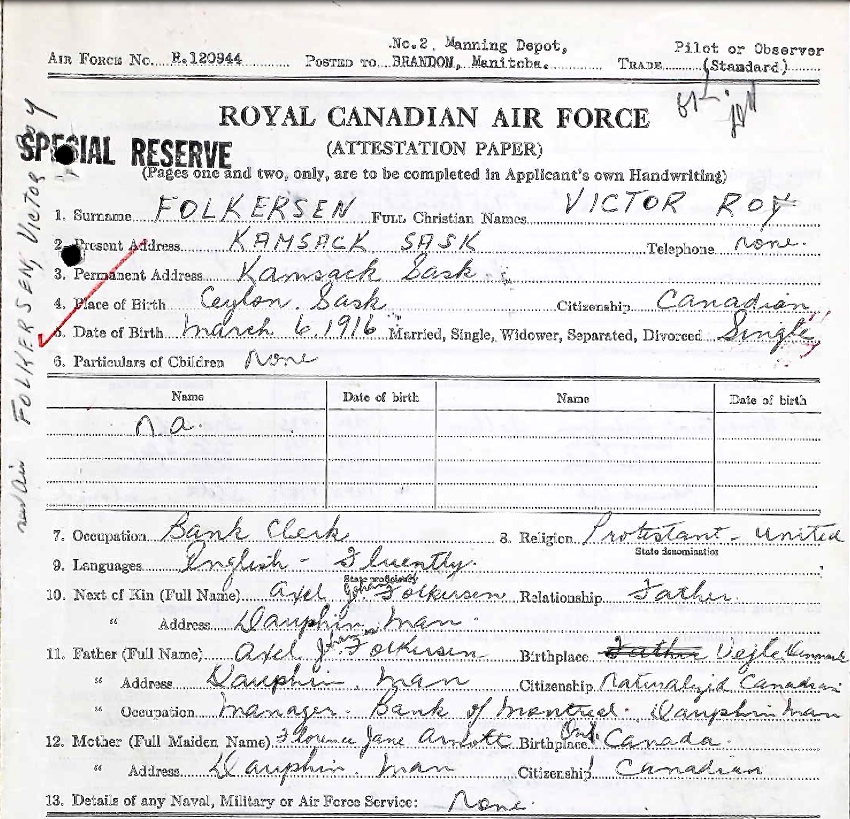 No. 2, Manning Depot,
AIR FORCE No. R.120944 POSTED TO BRANDON, Manitoba. TRADE Pilot or Observer (Standard)
ROYAL CANADIAN AIR FORCE
SPECIAL RESERVE
(ATTESTATION PAPER)
(Pages one and two, only, are to be completed in Applicant's own Handwriting)
1. Surname FOLKERSEN FULL Christian Names VICTOR ROY
2. Present Address KAMSACK SASK Telephone none.
3. Permanent Address Kamsack Sask.
4. Place of Birth Ceylon. Sask Citizenship Canadian
5. Date of Birth March 6, 1916 Married, Single, Widower, Separated, Divorced Single
6. Particulars of Children None
Name Date of birth Name Date of birth
n.a.
7. Occupation Bank Clerk 8. Religion Protestant - United
State denomination
9. Languages English - Fluently.
State proficiency
10. Next of Kin (Full Name) Axel Johannes Folkersen Relationship Father.
" Address Dauphin Man.
11. Father (Full Name) Axel Johannes Folkersen Birthplace Father Vejle Denmark
" Address Dauphin. Man Citizenship Naturalized Canadian
" Occupation Manager. Bank of Montreal. Dauphin Man
12. Mother (Full Maiden Name) Florence Jane Arnott Birthplace Ont. Canada.
" Address Dauphin. Man Citizenship Canadian
13. Details of any Naval, Military or Air Force Service: None.
FOLKERSEN, Victor Roy